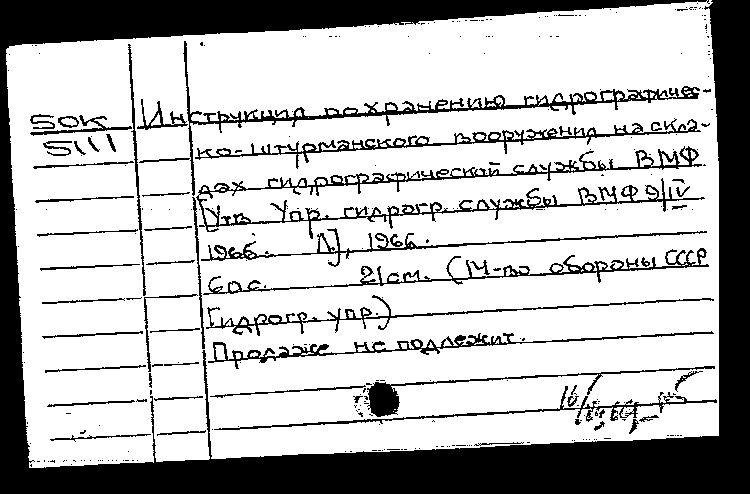 50К Инструкция по хранению гидрографичес-
5111 ко-штурманского вооружения на скла-
дах гидрографической службы ВМФ
[Утв. Упр. гидрогр. службы ВМФ 9/IV
1966. Л], 1966.
6 с. 21 см. (М-во обороны СССР
Гидрогр. упр.)
Продаже не подлежит.